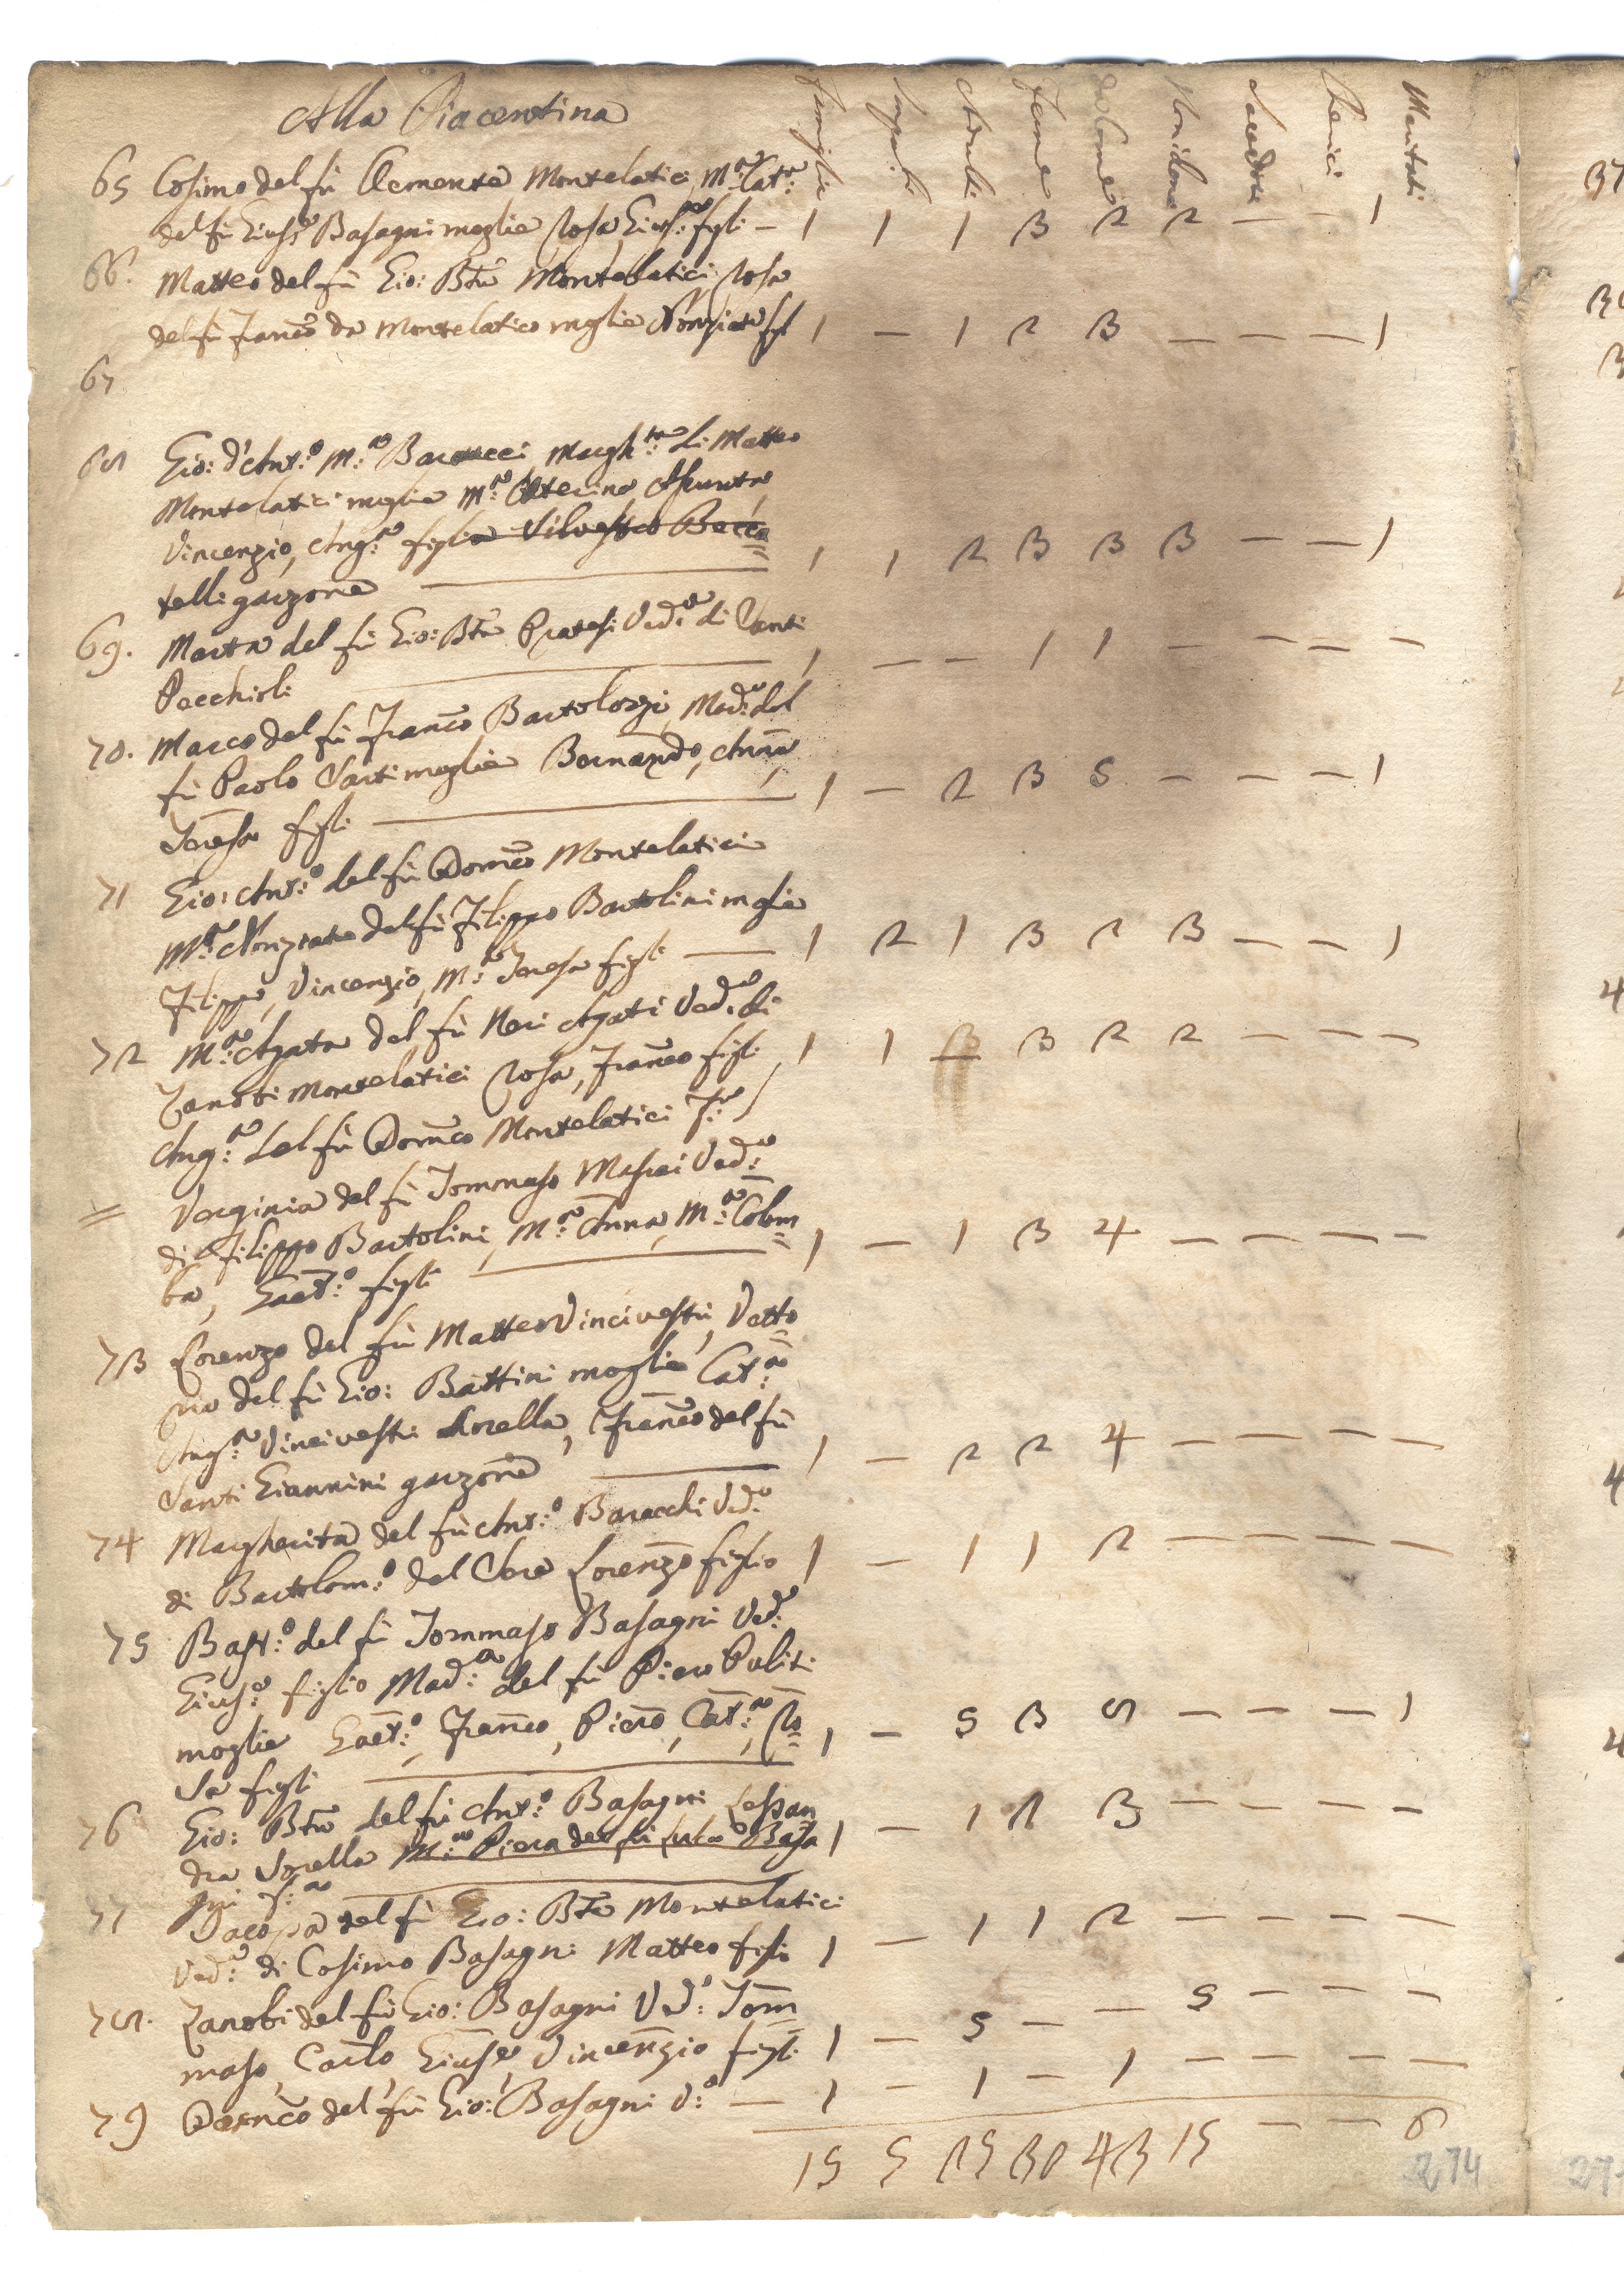 Alla Piacentina
Famiglie Ma Adulti Feme Da Come Non da Come Sacerdoti Cherici Maritati
65 Cosimo del fù Clemente Montelatici, M.ª Cat.ª
del fù Gius.e Basagni moglie, Rosa, Gius.e figli – 1 1 1 3 2 2 – – 1
66. Matteo del fù Gio: Bta Montelatici, Rosa
del fù Franco da Montelatico moglie Nonziata figl 1 – 1 2 3 – – – 1
67
68 Gio: d'Ant.º M.ª Baracci Margh.ta di Matteo
Montelatici moglie M.ª Caterina, Assunta,
Vincenzio, Ang.ª figli Silvestro Bacca=
telli garzone 1 1 2 3 3 3 – – 1
69. Marta del fù Gio: Bta Pratesi Ved.ª di Santi
Pecchioli 1 – – 1 1 – – – –
70. Marco del fù Franco Bartolozzi, Mad.ª del
fù Paolo Sarti moglie Bernardo, Anna,
Teresa figli 1 – 2 3 5 – – – 1
71 Gio: Ant.º del fù Domco Montelatici
M.ª Nonziata del fù Filippo Bartolini moglie
Filippo, Vincenzio, M.ª Teresa figli 1 2 1 3 2 3 – – 1
72 M.ª Agata del fù Neri Agati Ved.ª di
Zanobi Montelatici Rosa, Franco figli 1 1 3 3 2 2 – – –
Ang.ª del fù Domco Montelatici
= Verginia del fù Tommaso Masini Ved.ª
di Filippo Bartolini, M.ª Anna, M.ª Colom=
ba, Gaet.º figli 1 – 1 3 4 – – – –
73 Lorenzo del fù Matteo Vincivestri, Vetto=
ria del fù Gio: Battini moglie Cat.ª
Ang.ª Vincivestri Sorella, Franco del fù
Santi Giannini garzone 1 – 2 2 4 – – – –
74 Margherita del fù Ant.º Baracchi Ved.ª
di Bartolom.º del Cera Lorenzo figlio 1 – 1 1 2 – – – –
75 Bast.º del fù Tommaso Basagni Ved.º
Gius.e figlio Mad.ª del fù Piero Puliti
moglie Gaet.º, Franco, Piero, Cat.ª, Ro=
sa figli 1 – 5 3 8 – – – 1
76 Gio: Bta del fù Ant.º Basagni Lessan
dra Sorella M.ª Piera del fù Basa 1 – 1 2 3 – – – –
gni
77 Jacopa del fù Gio: Bta Montelatici
Ved.ª di Cosimo Basagni Matteo figlio 1 – 1 1 2 – – – –
78. Zanobi del fù Gio: Basagni Ved.º Tom=
maso, Carlo, Giuse, Vincenzio figli 1 – 5 – – 5 – – –
79 Domco del fù Gio: Basagni V.º – 1 – 1 – 1 – – – –
15 5 25 30 43 15 – – 6
274